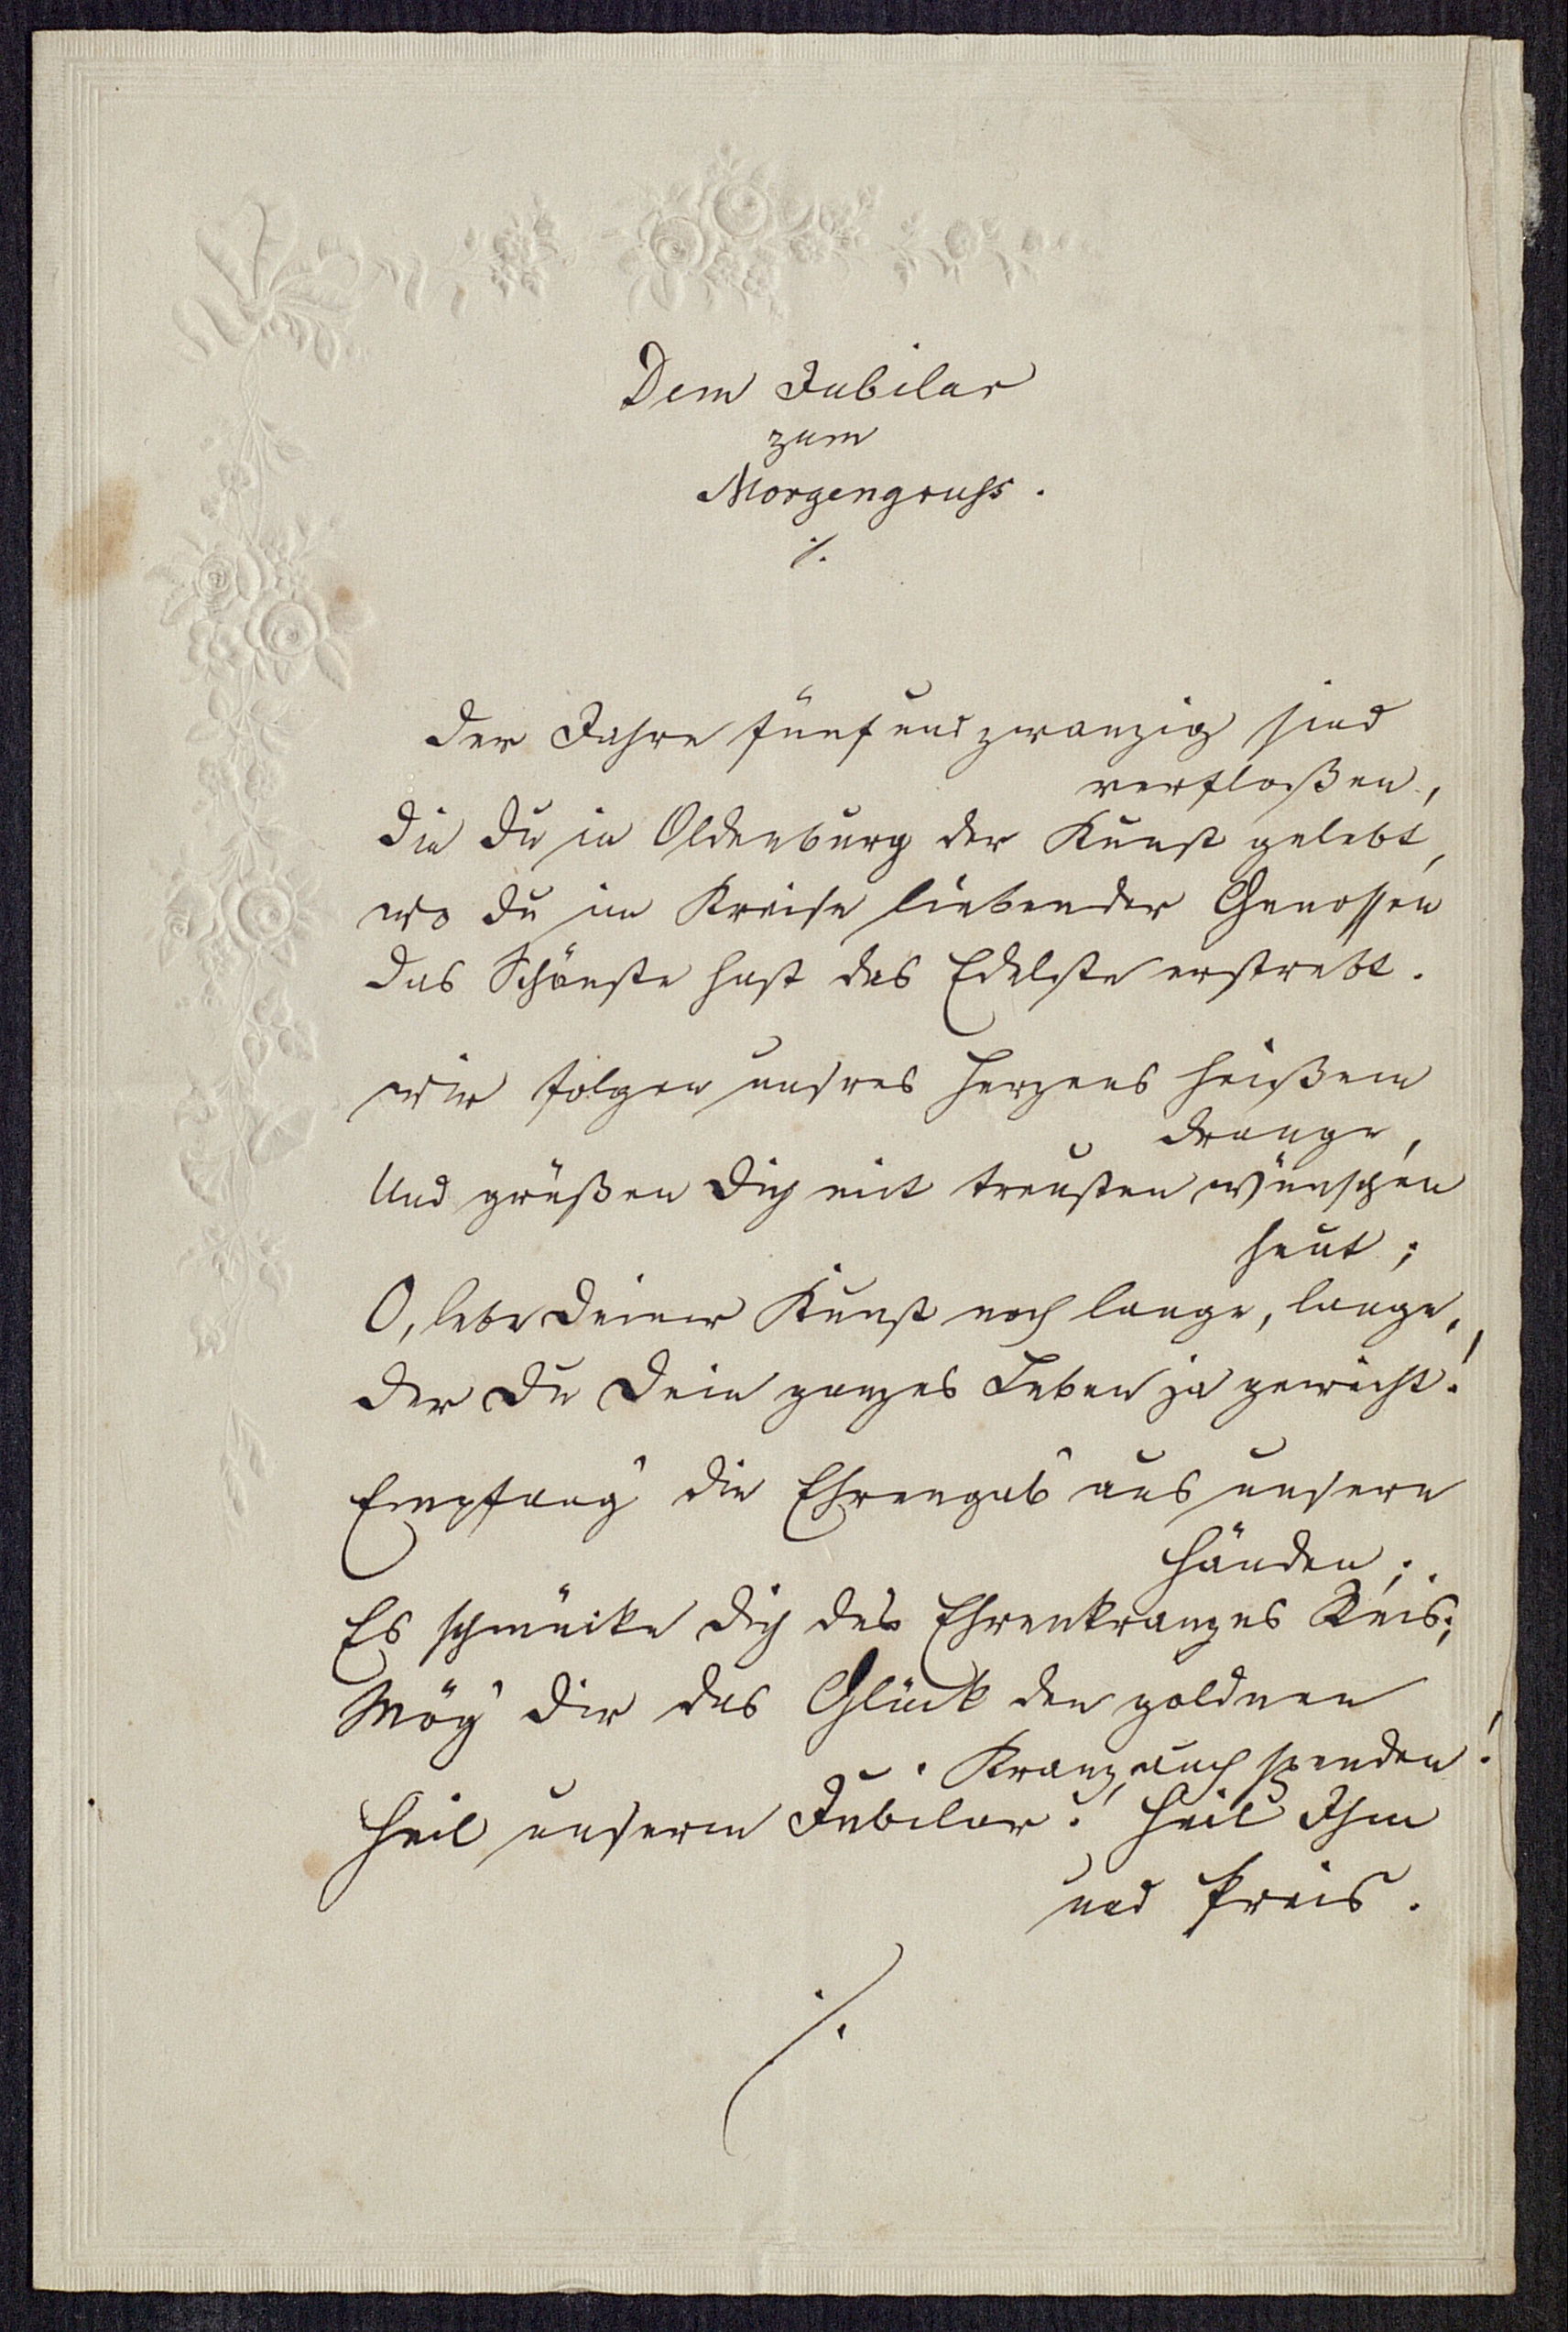 Dem Jubilar
zum
Morgengruss.
./.
Der Jahre fünfundzwanzig sind
verfloßen,
Die Du in Oldenburg der Kunst gelebt,
wo Du im Kreise liebender Genossen
Das Schönste hast das Edelste erstrebt.
Wir folgen unsres Herzens heißem
Drange,
Und grüßen Dich mit treusten Wünschen
heut;
O, lebe Deiner Kunst noch lange, lange,
Der Du Dein ganzes Leben ja geweiht!
Empfang' die Ehrengab' aus unsern
Händen;
Es schmücke Dich des Ehrenkranzes Reis;
Mög' Dir das Glück den goldnen
Kranz auch spenden!
Heil unserm Jubilar! Heil Ihm
und Preis.
./.